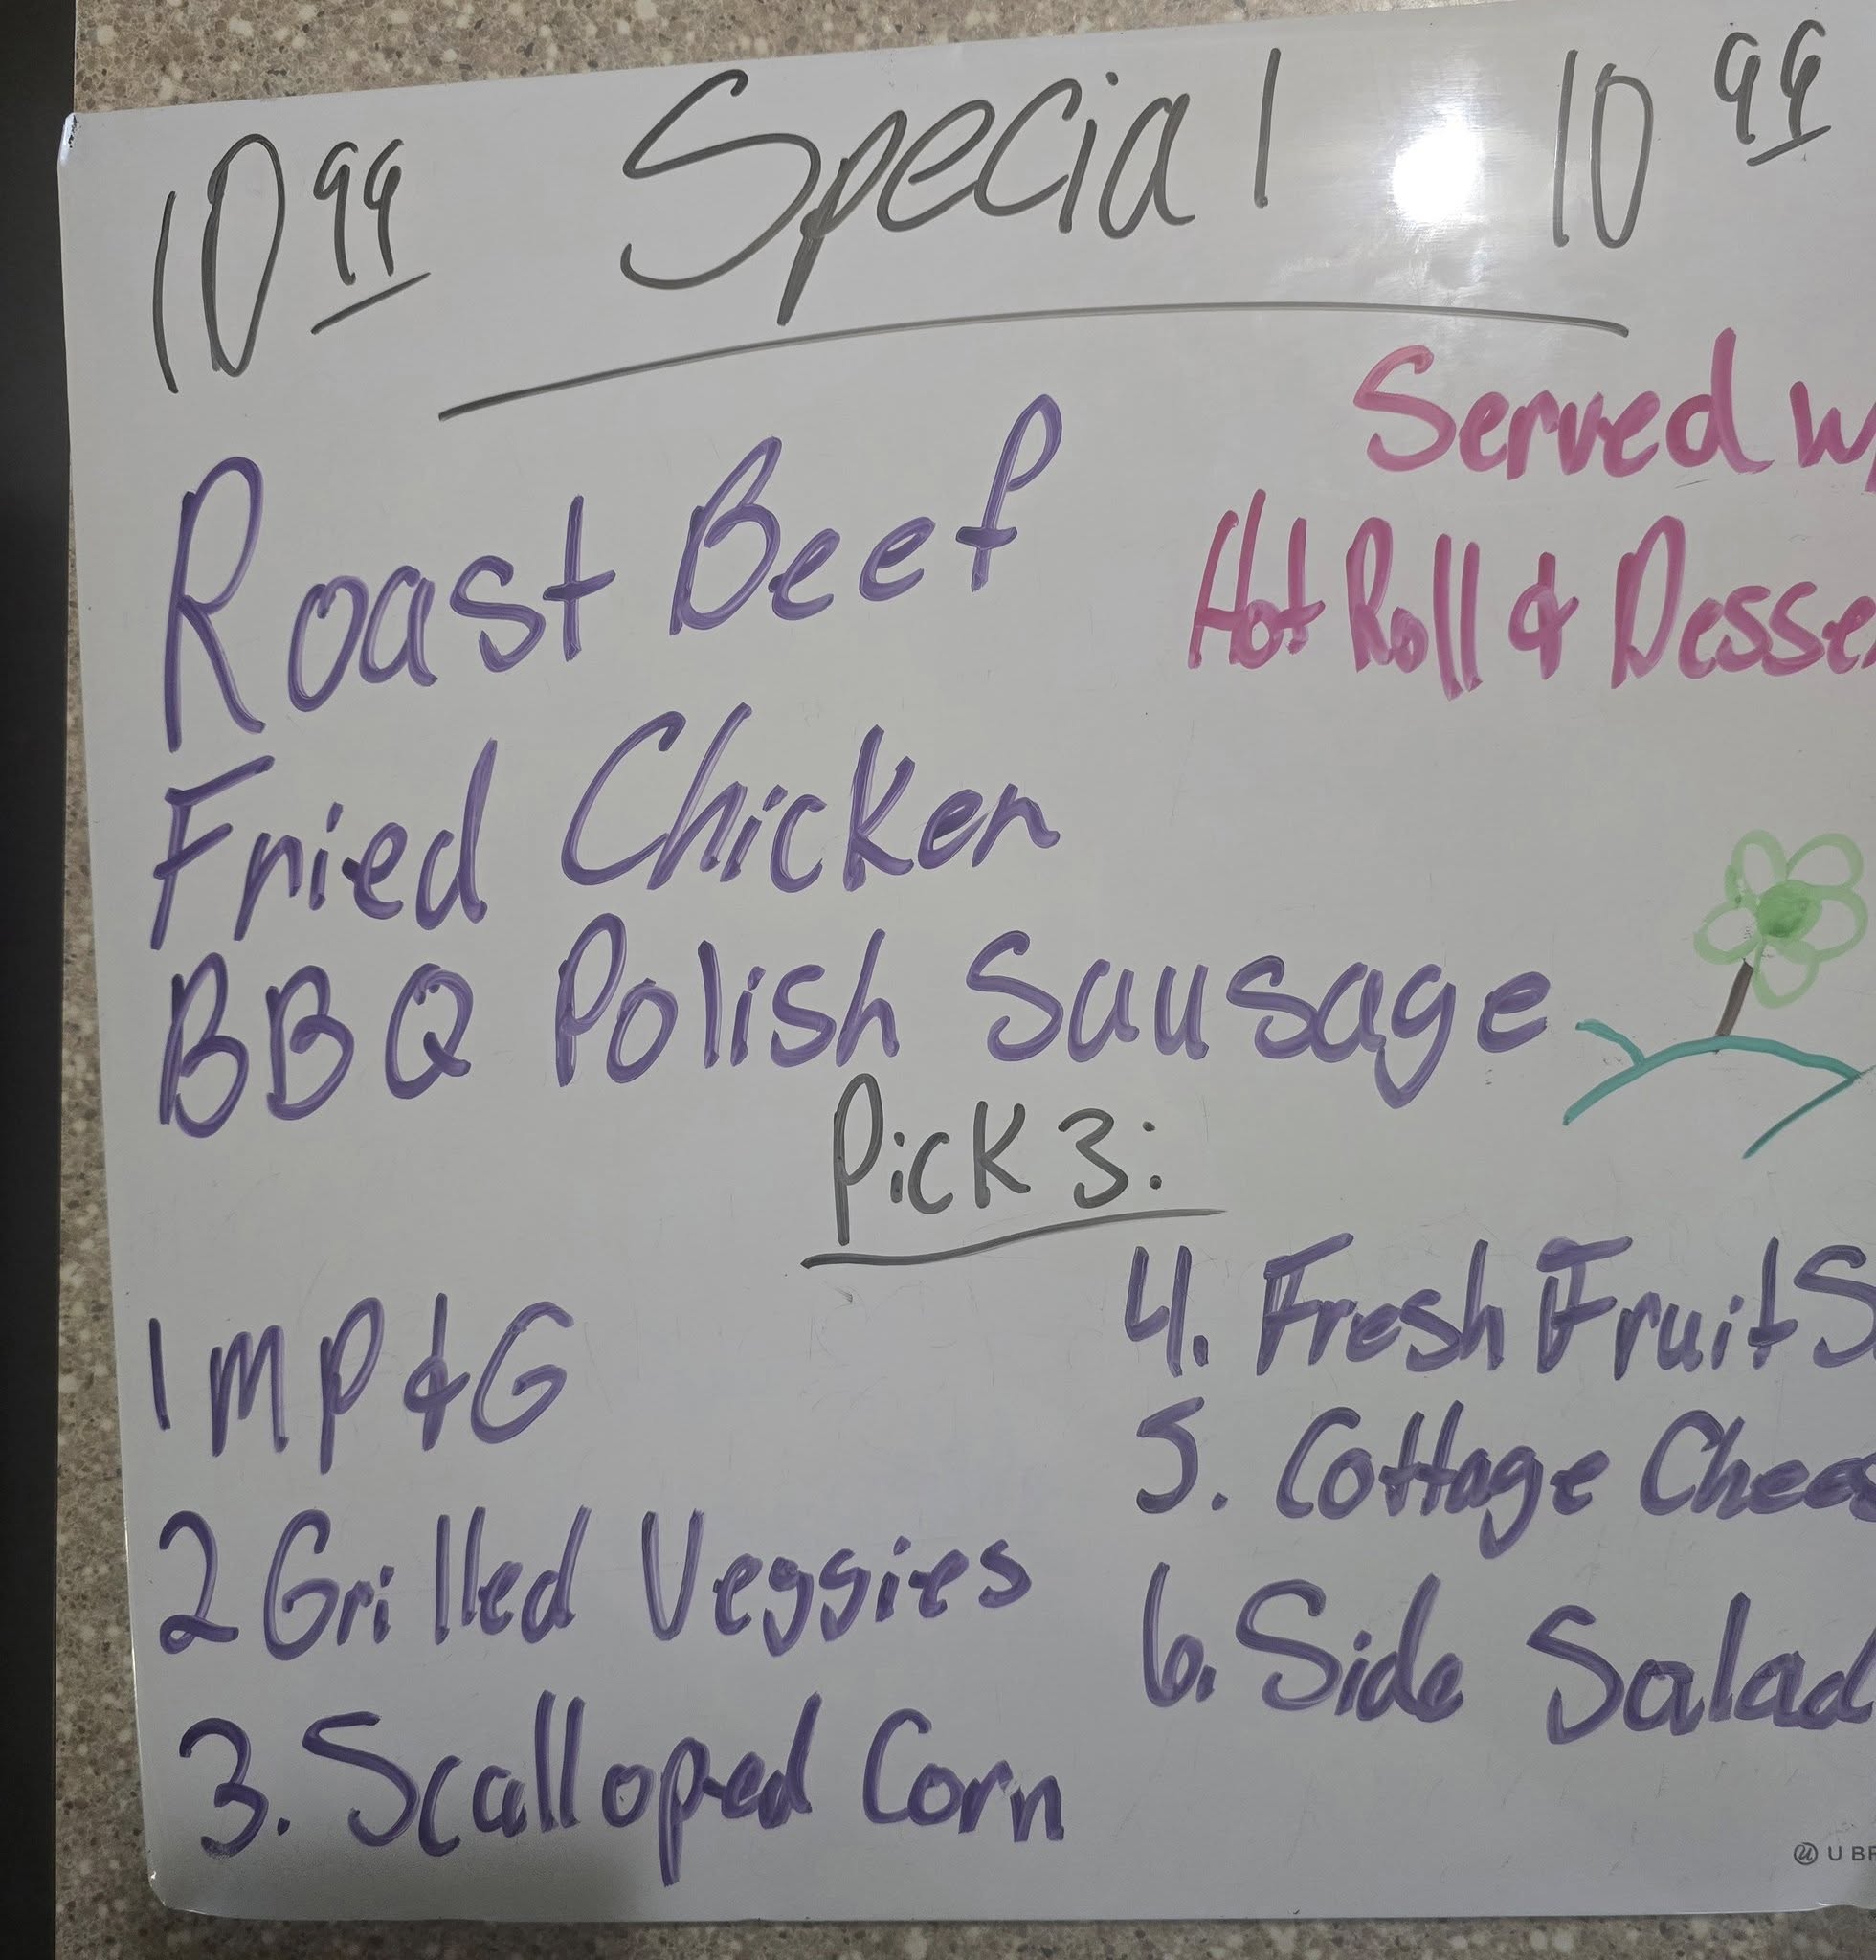 10 99 Special 10 99
Served w/
Roast Beef
Hot Roll & Desse
Fried Chicken
BBQ Polish Sausage
Pick 3:
1 MP&G
2 Grilled Veggies
3. Scalloped Corn
4. Fresh Fruit S
5. Cottage Chees
6. Side Salad
U BR